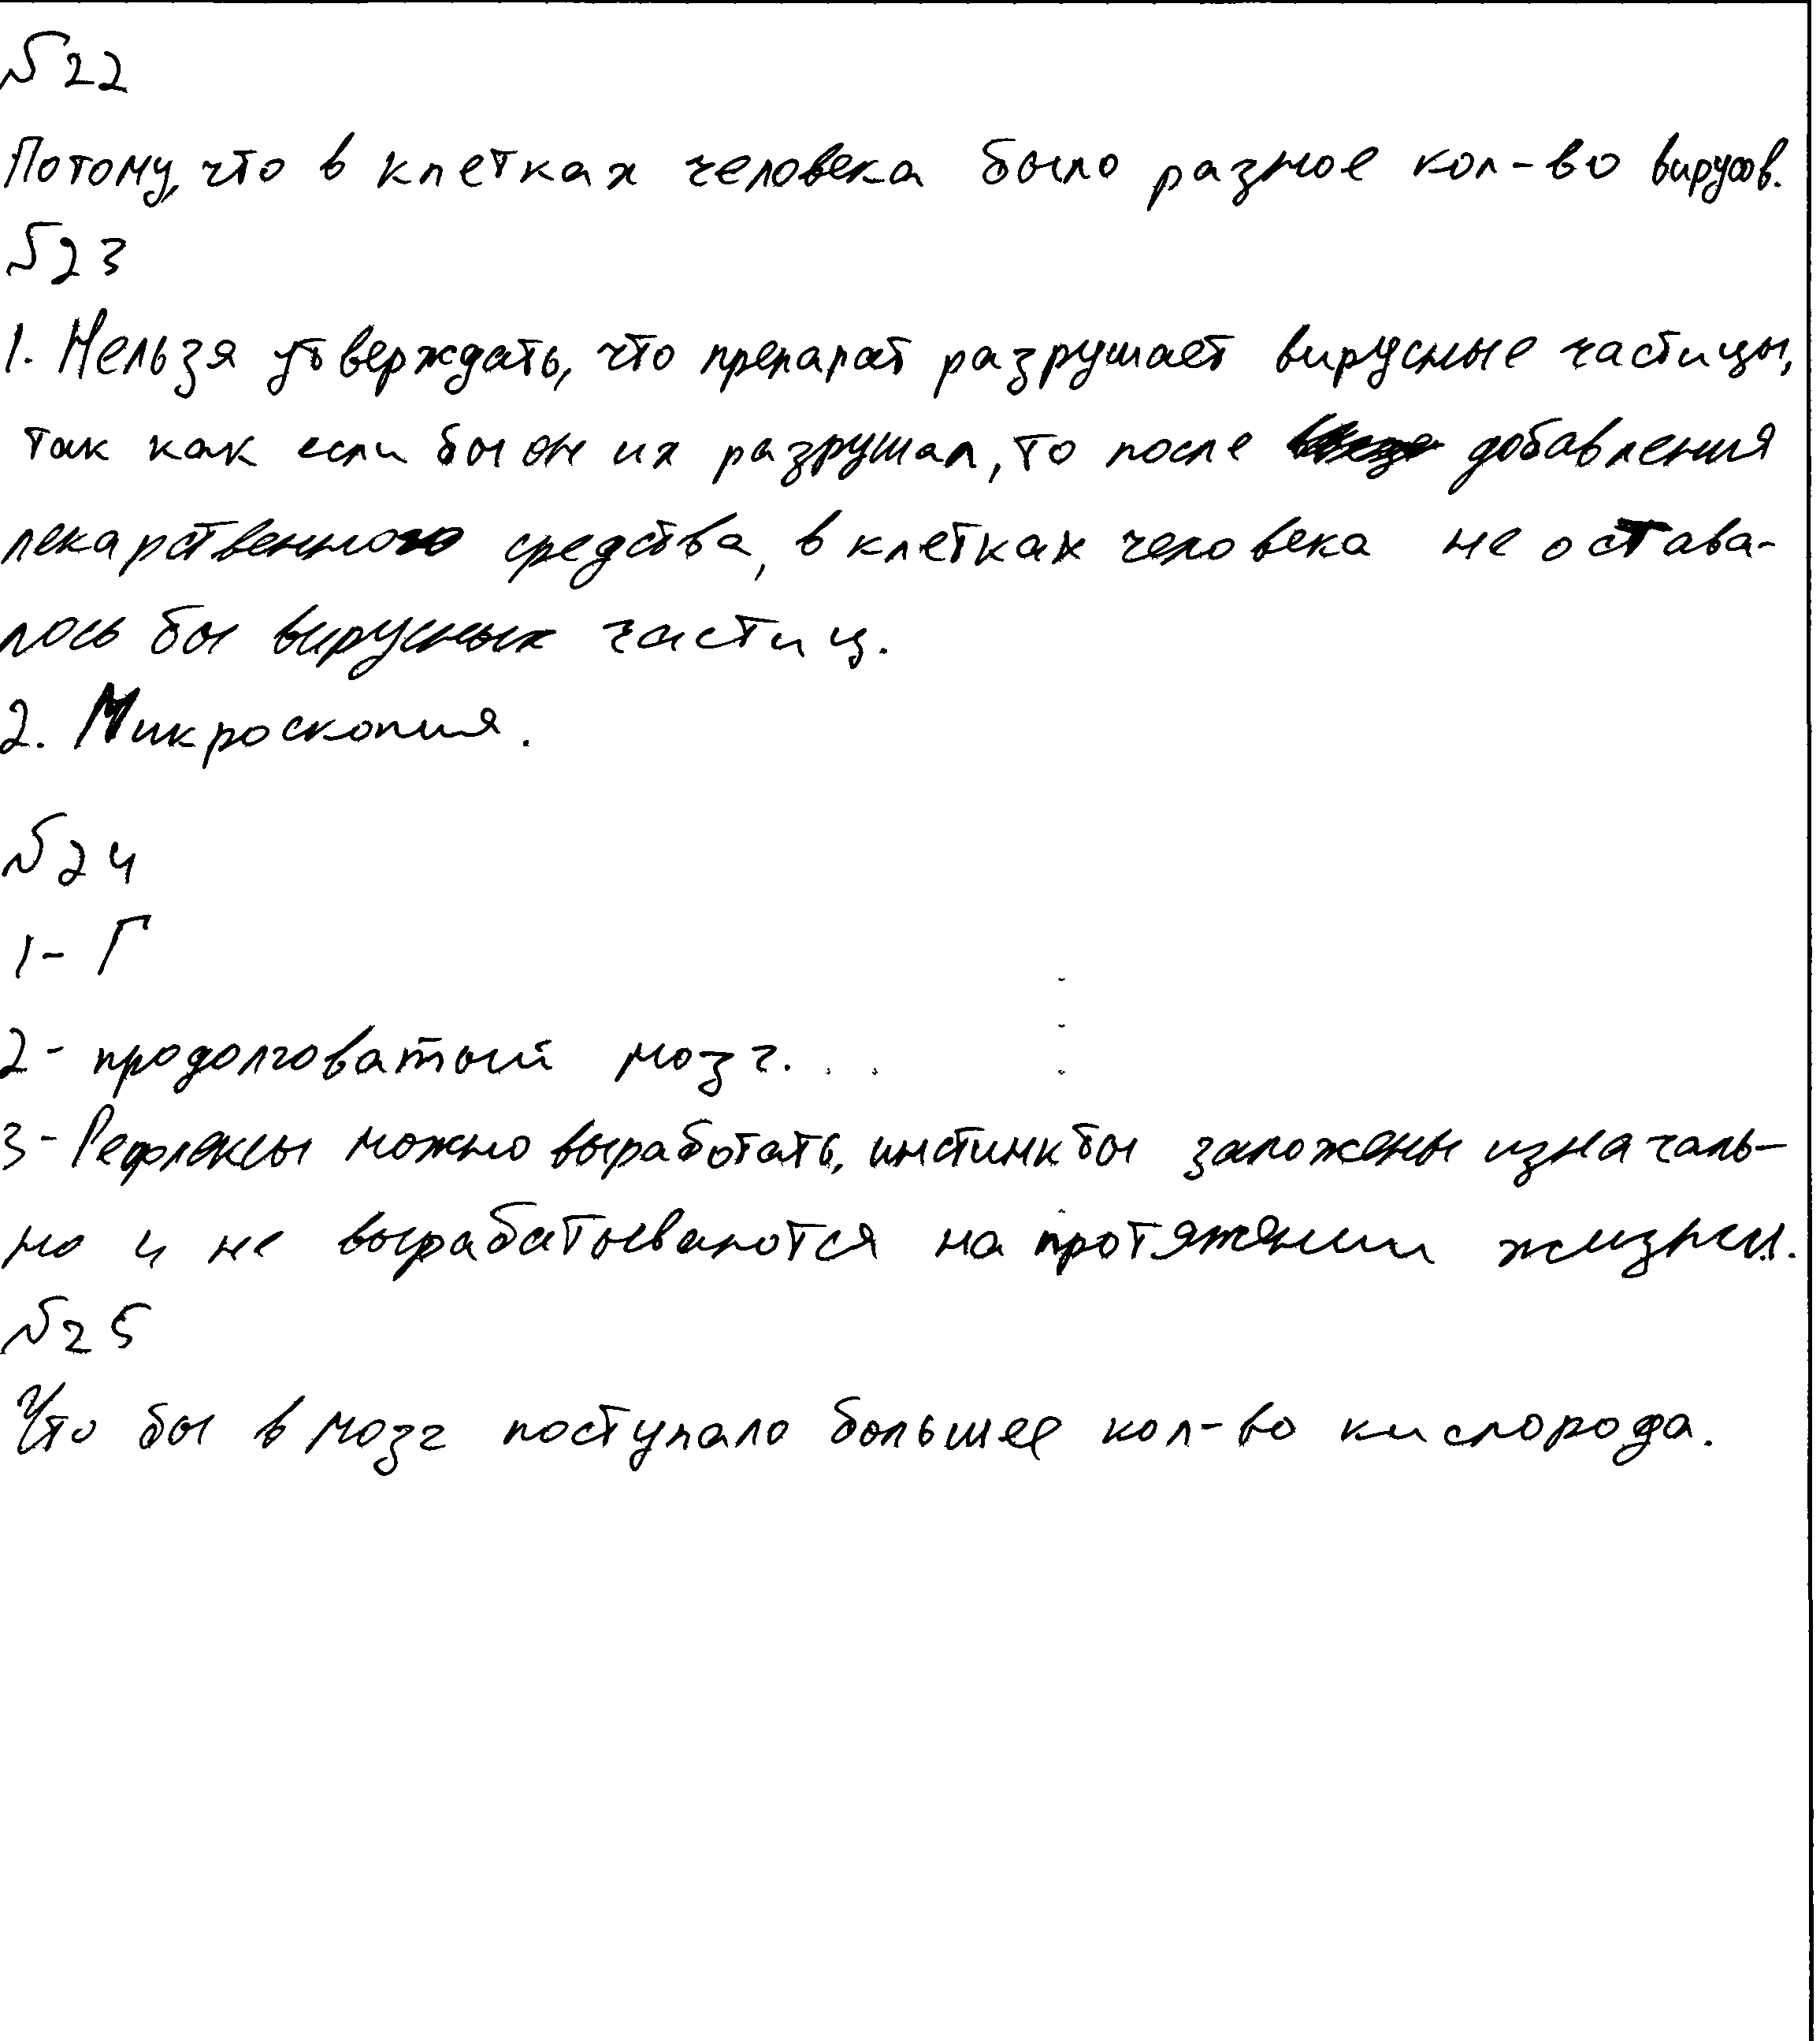 №22
Потому, что в клетках человека было разное кол-во вирусов.
№23
1. Нельзя утверждать, что препарат разрушает вирусные частицы,
так как если бы он их разрушал, то после добавления
лекарственного средства, в клетках человека не остава-
лось бы вирусных частиц.
2. Микроскопия.
№24
1- Г
2- продолговатый мозг.
3- Рефлексы можно выработать, инстинкты заложены изначаль-
но и не вырабатываются на протяжении жизни.
№25
Что бы в мозг поступало большее кол-во кислорода.